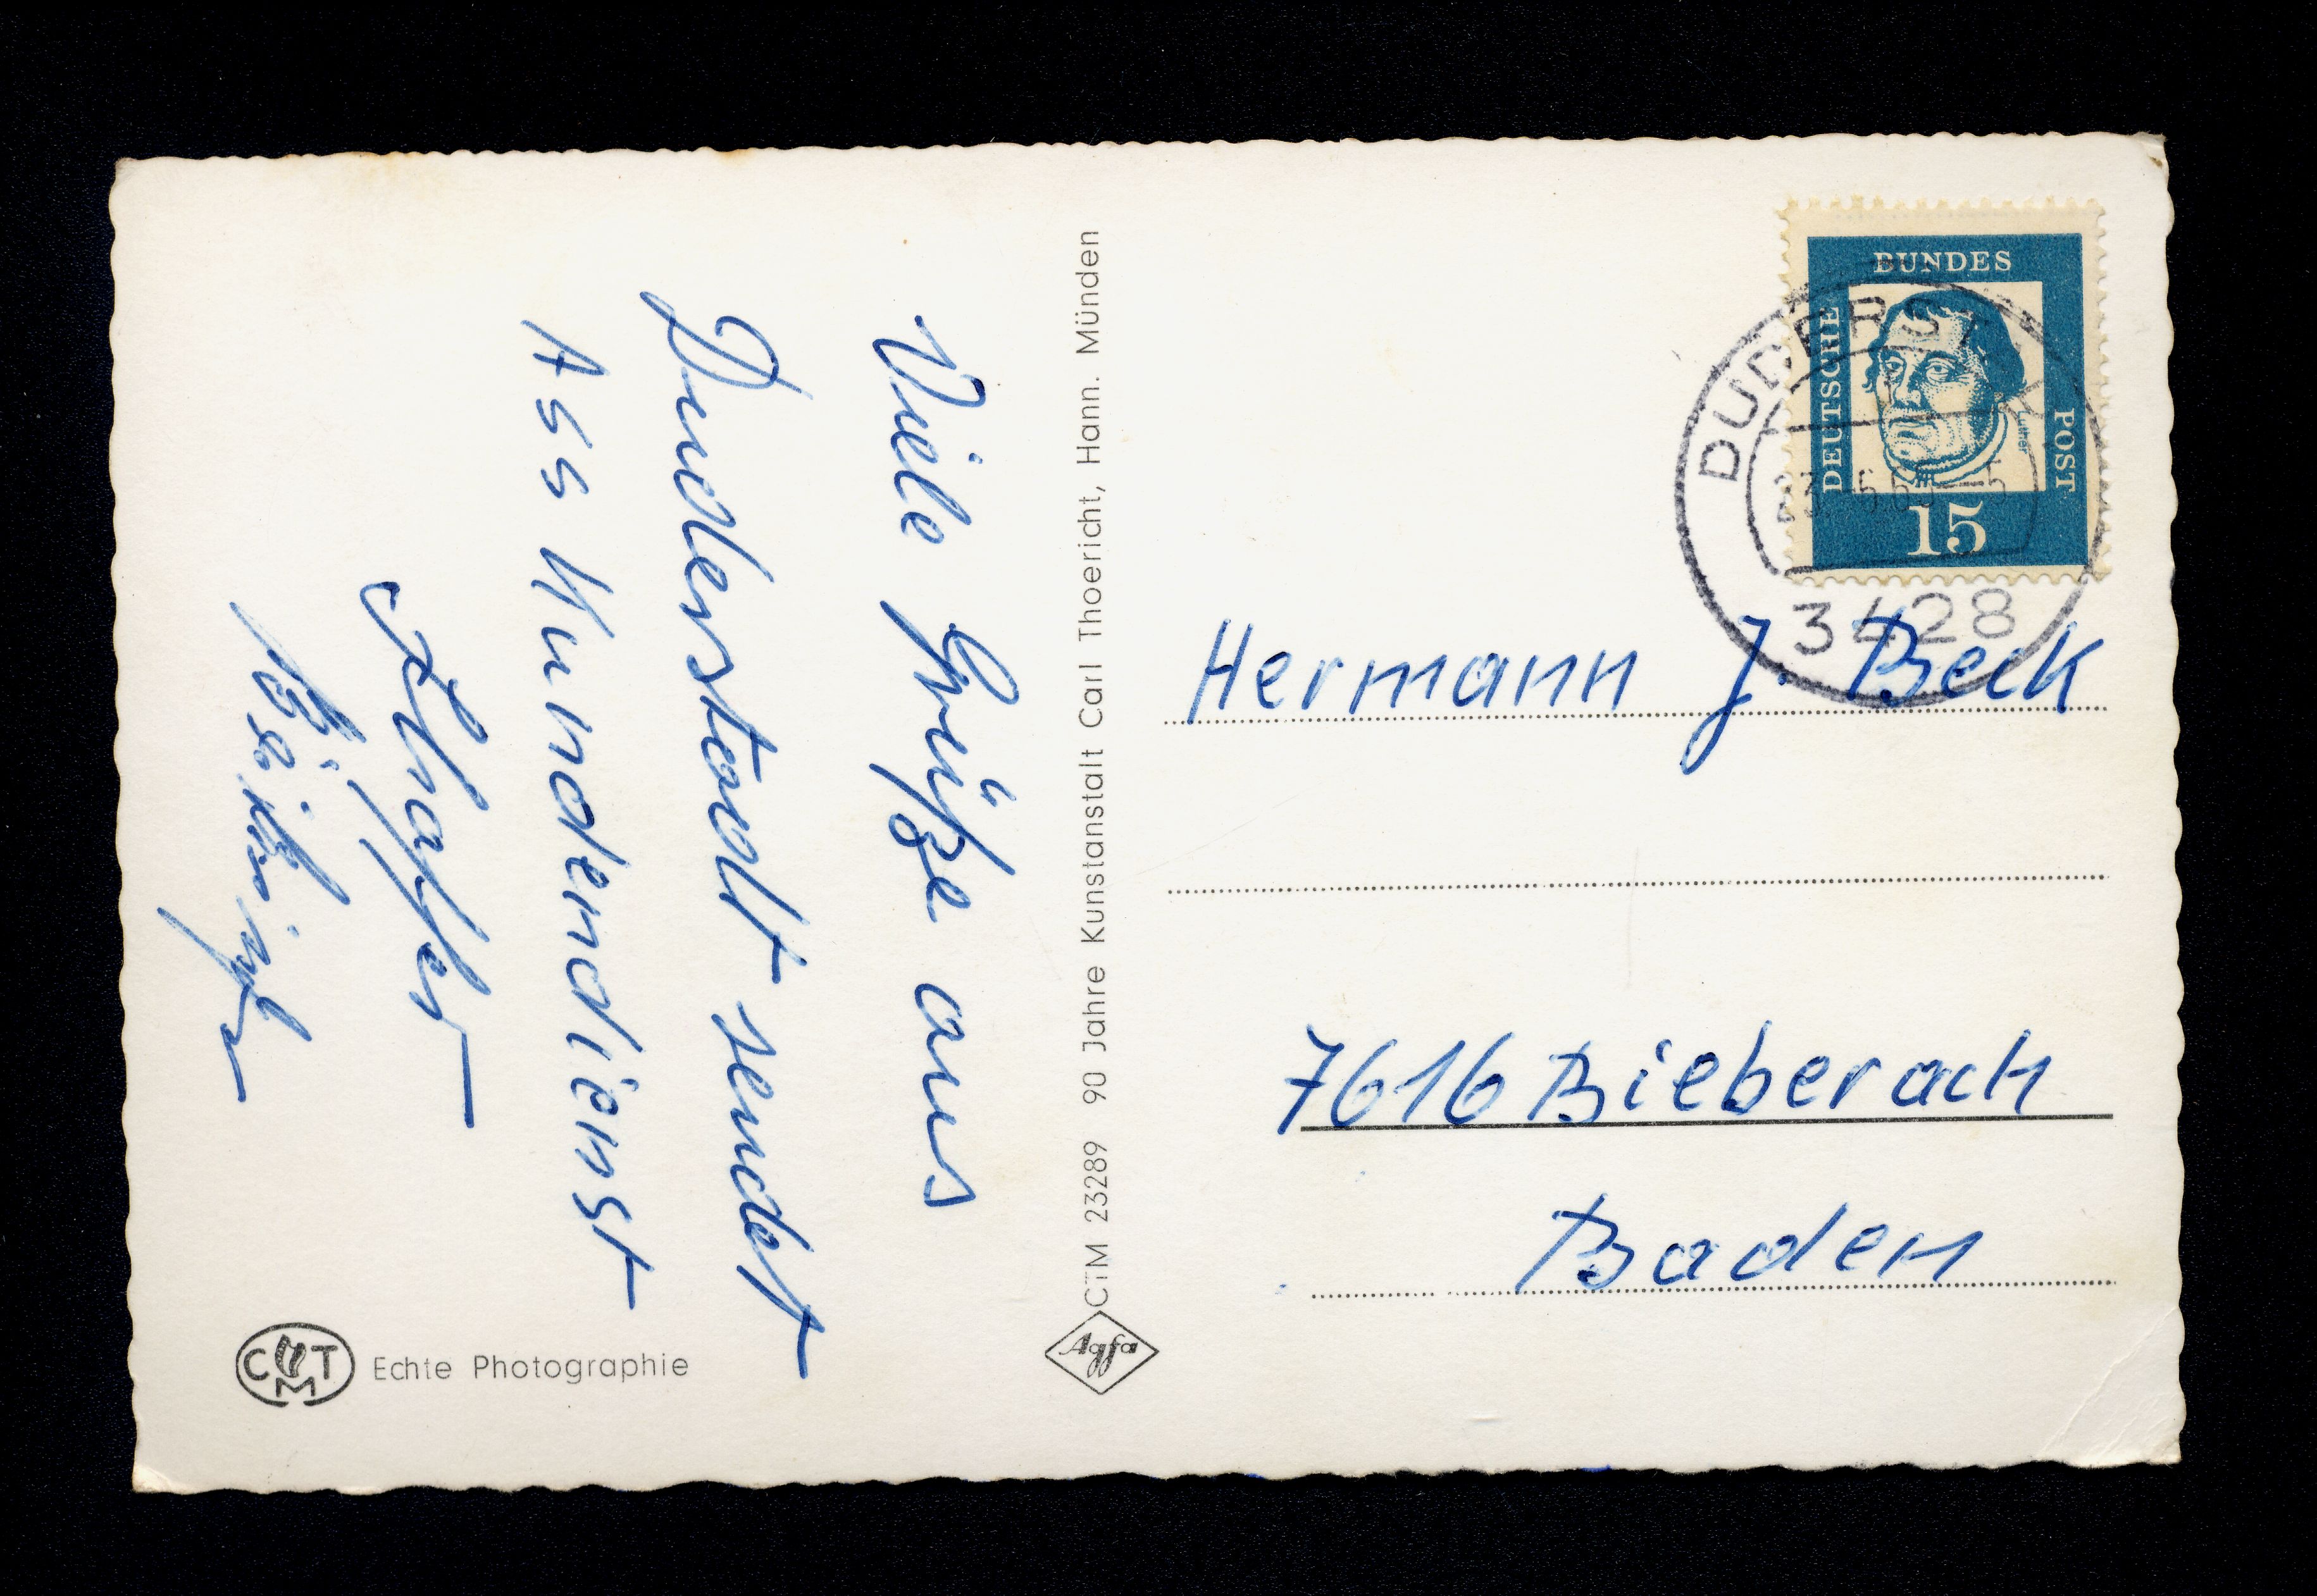 Viele Grüße aus
Duderstadt sendet
Ass Kundendienst
CTM 23289 90 Jahre Kunstanstalt Carl Thoericht, Hann. Münden
Agfa
C M T Echte Photographie
DEUTSCHE BUNDES POST
Luther
15
DUDERST
3428
Hermann J. Beck
7616 Bieberach
Baden